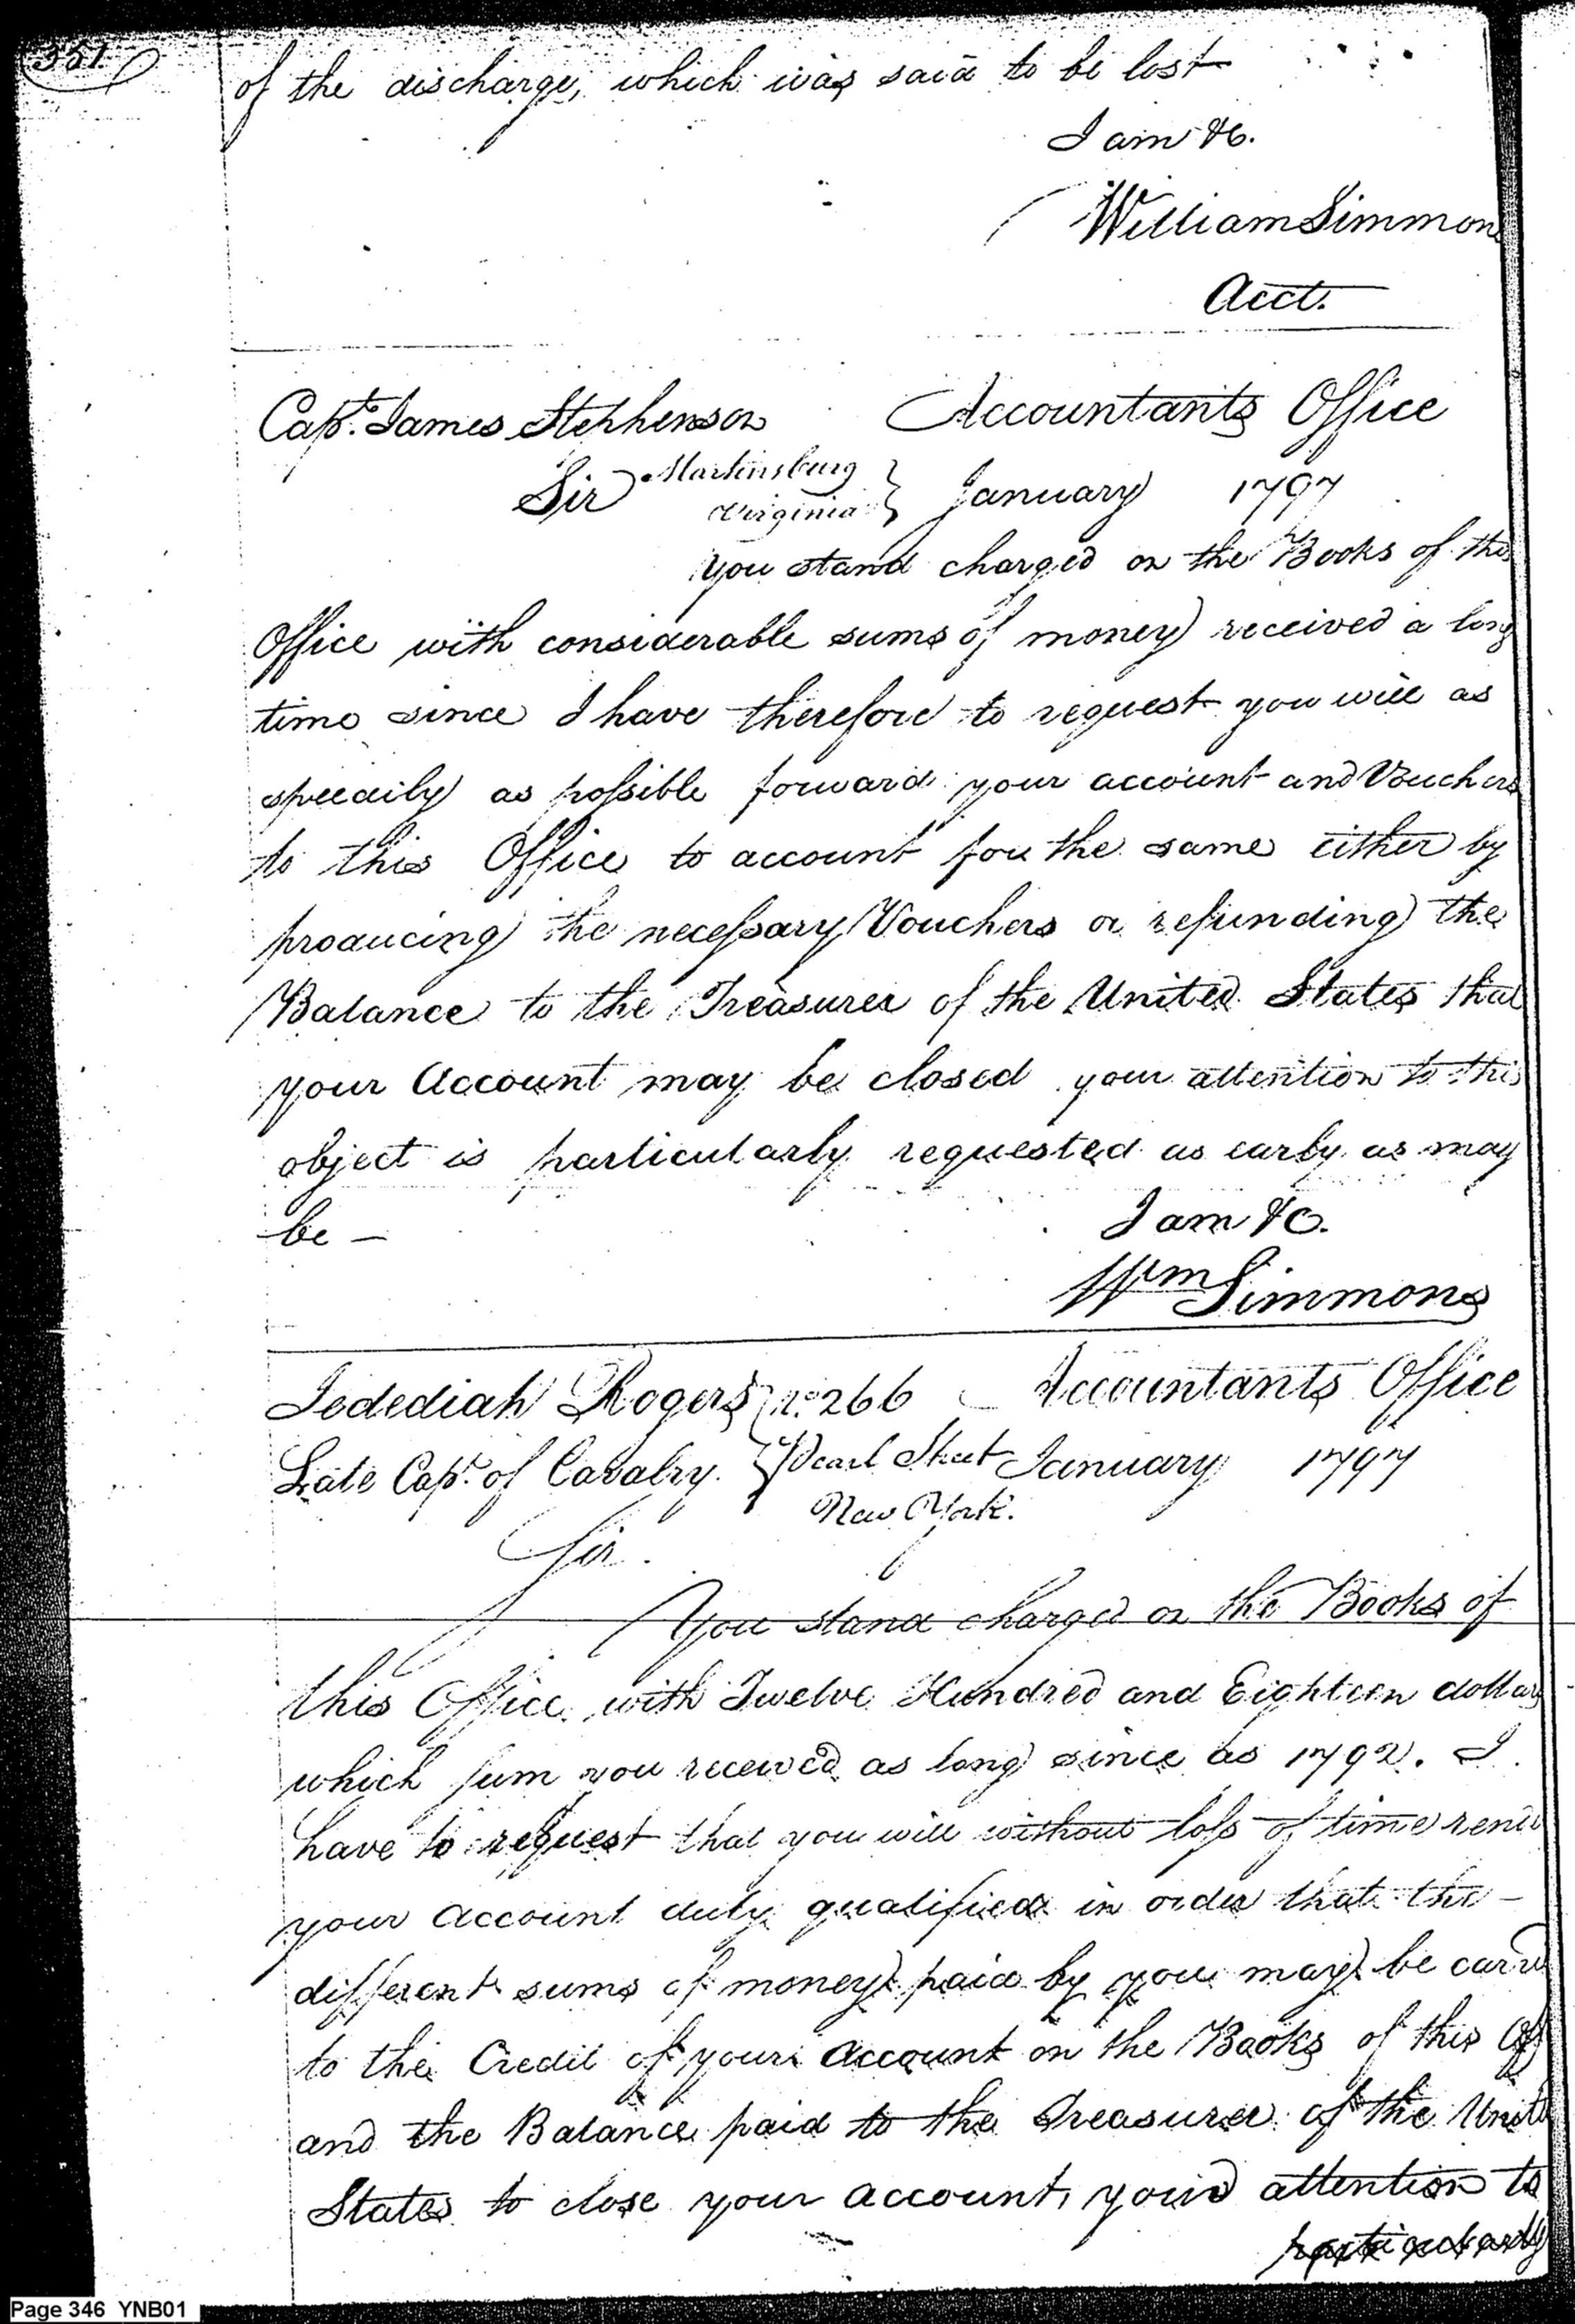 351
of the discharge, which was said to be lost
I am &c.
William Simmons
Acct.
Capt. James Stephenson Accountants Office
Sir Martinsburg Virginia } January 1797
you stand charged on the Books of this
Office with considerable sums of money received a long
time since I have therefore to request you will as
speedily as possible forward your account and Vouchers
to this Office to account for the same either by
producing the necessary Vouchers or refunding the
Balance to the Treasurer of the United States that
your Account may be closed your attention to this
object is particularly requested as early as may
be —
I am &c.
Wm Simmons
Jedediah Rogers } No. 266 Accountants Office
Late Capt. of Cavalry. } Pearl Street January 1797
New York.
Sir.
You stand charged on the Books of
this Office with Twelve Hundred and Eighteen dollars
which sum you received as long since as 1792. I
have to request that you will without loss of time rend
your account duly qualified in order that the –
different sums of money paid by you may be carr
to the Credit of your account on the Books of this Off
and the Balance paid to the Treasurer of the Unite
States to close your account, your attention to
particularly
Page 346 YNB01